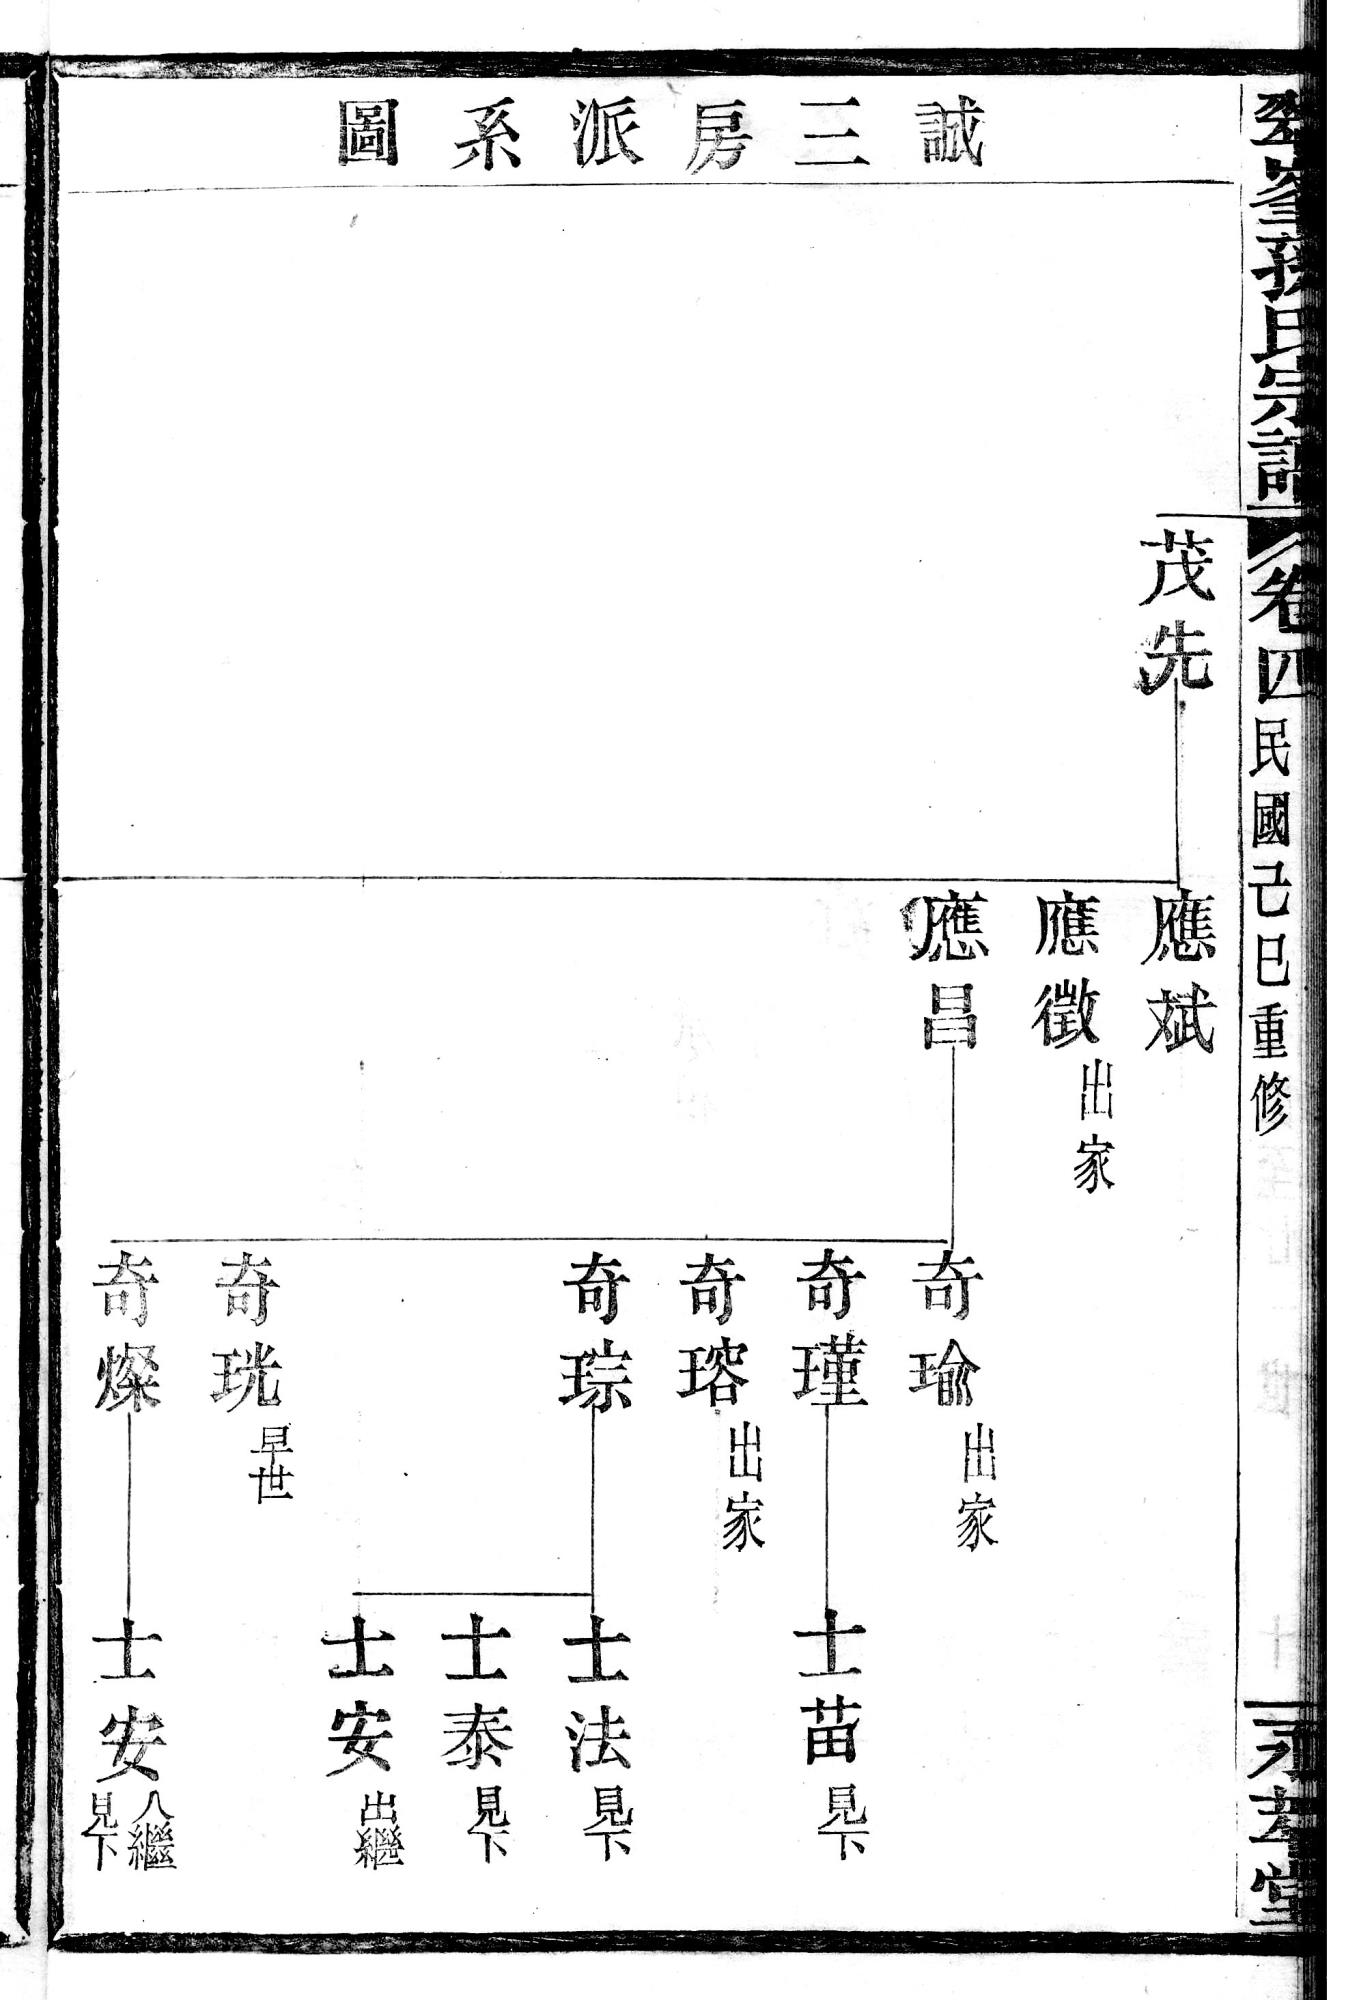 孫氏宗譜
卷四
民國己巳重修
誠三房派系圖
茂先
應斌
應徵 出家
應昌
奇瑜 出家
奇瑾
奇瑢 出家
奇琮
奇珖 早世
奇燦
士苗 見下
士法 見下
士泰 見下
士安 出繼
士安 入繼 見下
堂